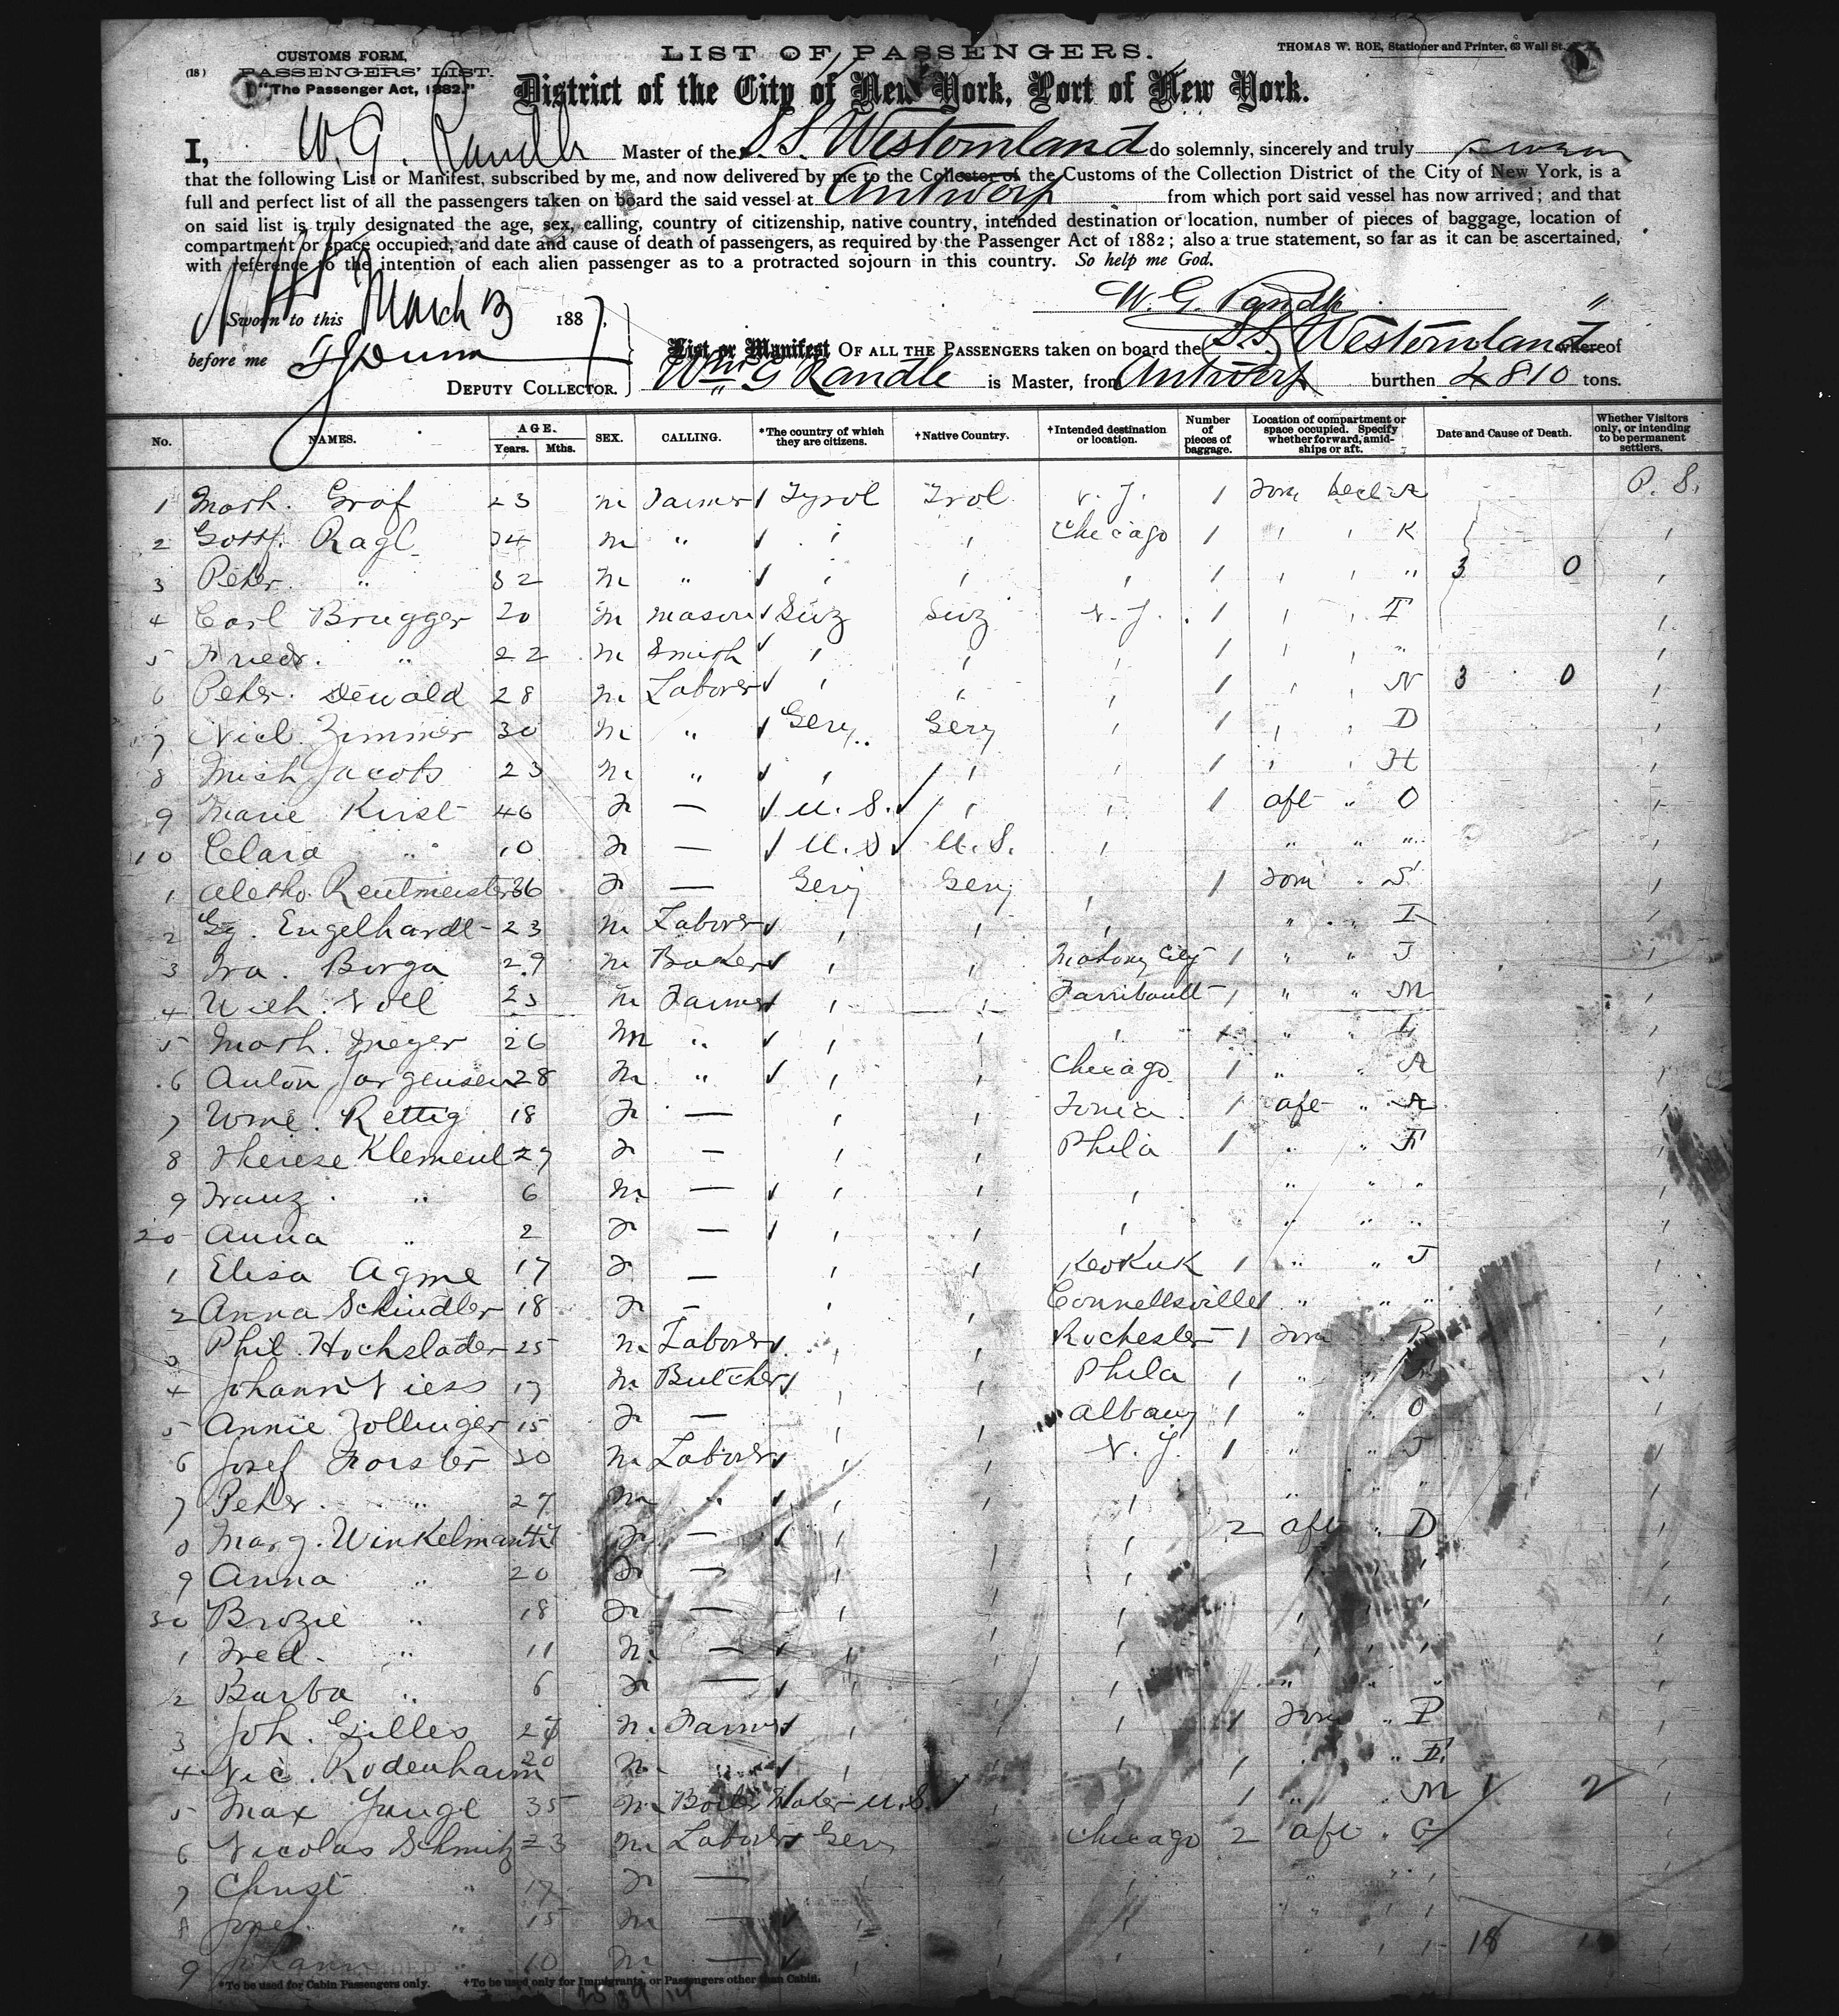 LIST OF PASSENGERS.
CUSTOMS FORM,
THOMAS W. ROE, Stationer and Printer, 63 Wall St.
(18)
PASSENGERS' LIST.
"The Passenger Act, 1882."
District of the City of New York, Port of New York.
I, W. G. Randle Master of the S.S. Westernland do solemnly, sincerely and truly swear
that the following List or Manifest, subscribed by me, and now delivered by me to the Collector of the Customs of the Collection District of the City of New York, is a
full and perfect list of all the passengers taken on board the said vessel at Antwerp from which port said vessel has now arrived; and that
on said list is truly designated the age, sex, calling, country of citizenship, native country, intended destination or location, number of pieces of baggage, location of
compartment or space occupied, and date and cause of death of passengers, as required by the Passenger Act of 1882; also a true statement, so far as it can be ascertained,
with reference to the intention of each alien passenger as to a protracted sojourn in this country. So help me God.
W. G. Randle
Sworn to this March 13 1887,
before me
DEPUTY COLLECTOR.
List or Manifest OF ALL THE PASSENGERS taken on board the S.S. Westernland whereof
Wm G Randle is Master, from Antwerp burthen 4810 tons.
No. NAMES. AGE. Years. Mths. SEX. CALLING. *The country of which they are citizens. †Native Country. †Intended destination or location. Number of pieces of baggage. Location of compartment or space occupied. Specify whether forward, amidships or aft. Date and Cause of Death. Whether Visitors only, or intending to be permanent settlers.
1 Math. Graf 23 m Farmer Tyrol Trol N. Y. 1 A P. S.
2 Gottf. Ragl 34 m " Chicago 1 K
3 Peter " 32 m " 1 " 3 0
4 Carl Brugger 20 m mason Swz Swz N. Y. 1 I
5 Friedr. " 22 m Smith 1 "
6 Peter Dewald 28 m Laborer 1 N 3 0
7 Nicl. Zimmer 30 m " Gery Gery 1 D
8 Mich Jacobs 23 m " 1 H
9 Marie Kirst 46 F — U. S. 1 aft " O
10 Clara " 10 F — U. S. U. S. " " "
1 Rentmeister 36 F — Gery Gery 1 " S
2 Gg. Engelhardt 23 m Laborer " " I
3 Fra. Borga 29 m Baker Mahony City 1 " " J
4 Wilh. Noll 23 m Farmer Farribault 1 " " M
5 Math. Meyer 26 m " " " L
6 Anton Jorgensen 28 m " Chicago 1 " A
7 Wme. Rettig 18 F — Ionia 1 aft " A
8 Therese Klement 27 F — Phila 1 " " F
9 Franz " 6 m — " " "
20 Anna " 2 F — " " "
1 Elisa Agme 17 F — Keokuk 1 " " J
2 Anna Schindler 18 F — Connellsville 1 " " "
3 Phil. Hochslader 25 m Laborer Rochester 1 R
4 Johann Niess 17 m Butcher Phila 1 "
5 Annie Zollinger 15 F — Albany 1 " O
6 Josef Forster 30 m Laborer N. Y. 1 " " J
7 Peter " 27 m " " "
8 Marg. Winkelmann F — 2 aft " D
9 Anna " 20 F —
30 Brozie " 18 F —
1 Fred. " 11 m —
2 Barba " 6 F — " "
3 Joh. Gilles m Farmer 1 " P
4 Nic. Rodenhaim 20 m " 1 " E
5 Max Jungl 35 m Boiler Maker U. S. 1 " M 1 2
6 Nicolas Schmitz 23 m Laborer Gery Chicago 2 aft " G
7 Christ " 17 F —
8 Josef " 15 m —
9 Johann " 10 m — 18
*To be used for Cabin Passengers only. †To be used only for Immigrants, or Passengers other than Cabin.